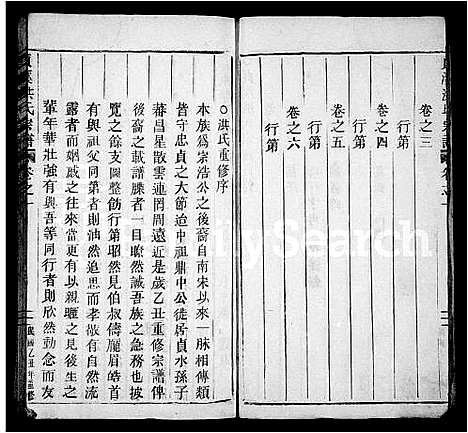 卷之三
行第
卷之四
行第
卷之五
行第
卷之六
行第
○洪氏重修序
本族為宗浩公之後裔自南宋以來一脉相傳類
皆守忠貞之大節迨中祖鼎中公徒居貞水孫子
蕃昌星散雲連罔周遠近是歲乙丑重修宗譜俾
後裔之載譜牒者一目瞭然誠吾族之急務也披
覽之餘支圖整飭行第昭然見伯叔儔龐眉皓首
有與祖父同第者則油然追思而孝敬有自然流
露者而姻戚之往來當更有以親曬之見後生之
輩年華壯強有與吾等同行者則欣然動念而友
洪氏宗譜
卷之一
民國乙丑年重修
FamilySearch